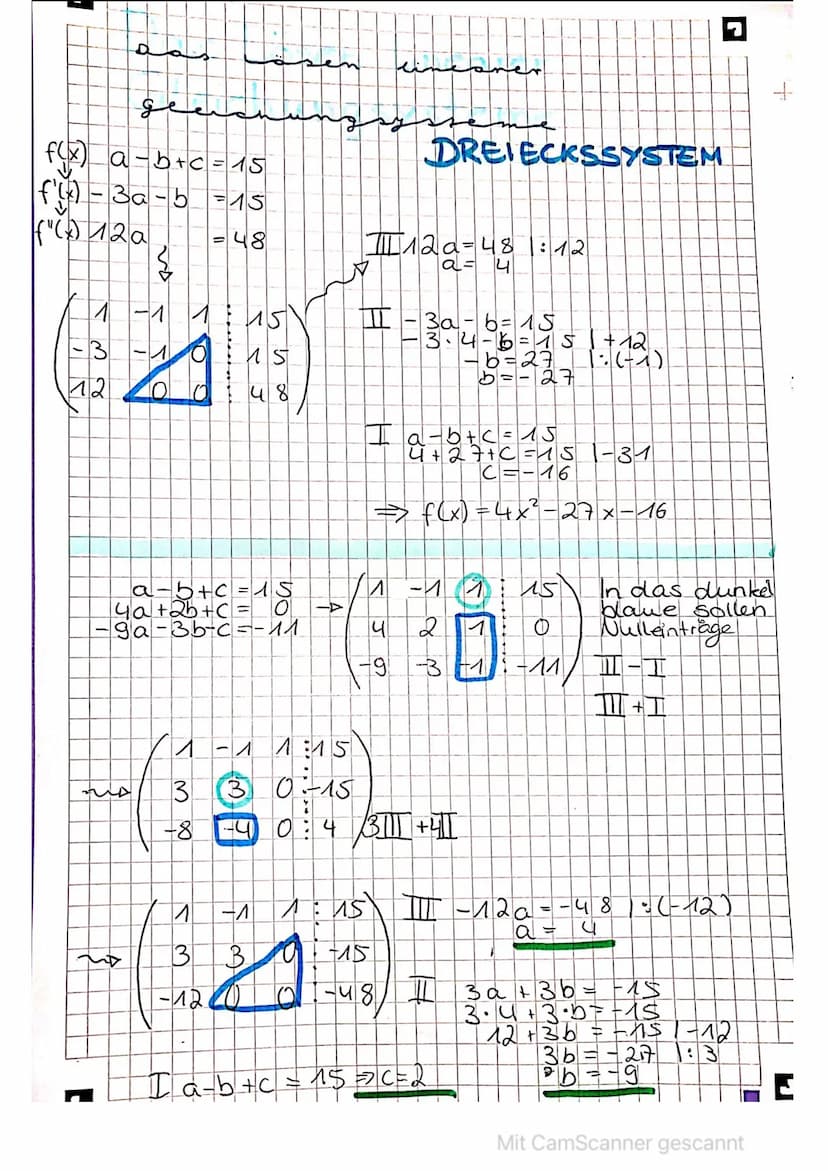 Das Lösen linearer
Gleichungssysteme
DREIECKSSYSTEM
f(x) a-b+c=15
f'(x) -3a-b =15
f''(x) 12a =48
1 -1 1 15
-3 -1 0 15
12 0 0 48
III 12a=48 |:12
a= 4
II -3a-b=15
-3·4-b=15 |+12
-b=27 |:(-1)
b=-27
I a-b+c=15
4+27+c=15 |-31
c=-16
⇒ f(x)=4x²-27x-16
a-b+c=15
4a+2b+c= 0
-9a-3b-c=-11
→
1 -1 1 15
4 2 1 0
-9 -3 -1 -11
In das dunkel
blaue sollen
Nulleinträge
II-I
III+I
1 -1 1 15
3 3 0 -15
-8 -4 0 4 3III+4II
1 -1 1 15
3 3 0 -15
-12 0 0 -48
III -12a=-48 |:(-12)
a= 4
II 3a+3b=-15
3·4+3·b=-15
12+3b=-15 |-12
3b=-27 |:3
b=-9
I a-b+c=15 ⇒ c=2
Mit CamScanner gescannt